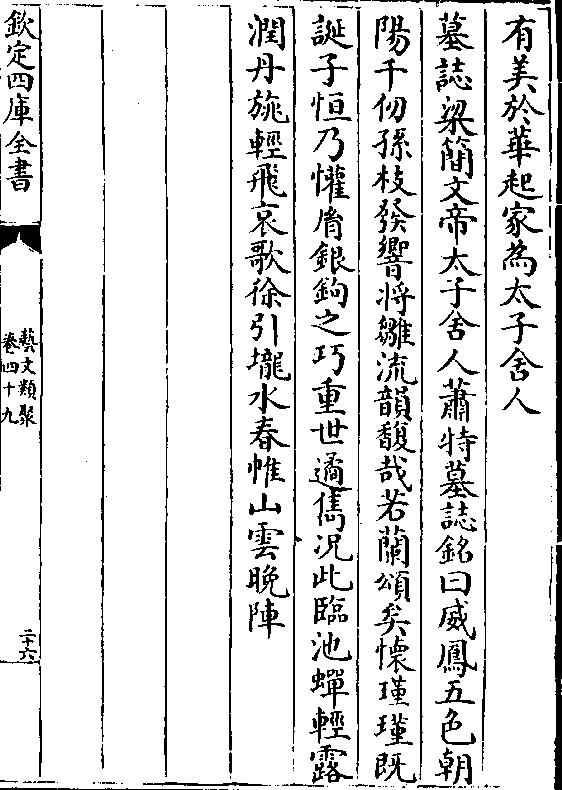 有美於華起家為太子舍人
墓誌梁簡文帝太子舍人蕭特墓誌銘曰威鳳五色朝
陽千仞孫枝發響將雛流韻馥哉若蘭頌矣懷瑾瑾既
誕子恒乃懽脣銀鉤之巧重世遒儁况此臨池蟬輕露
潤丹旐輕飛哀歌徐引壠水春帷山雲晚陣
欽定四庫全書
藝文類聚
卷四十九
二十六